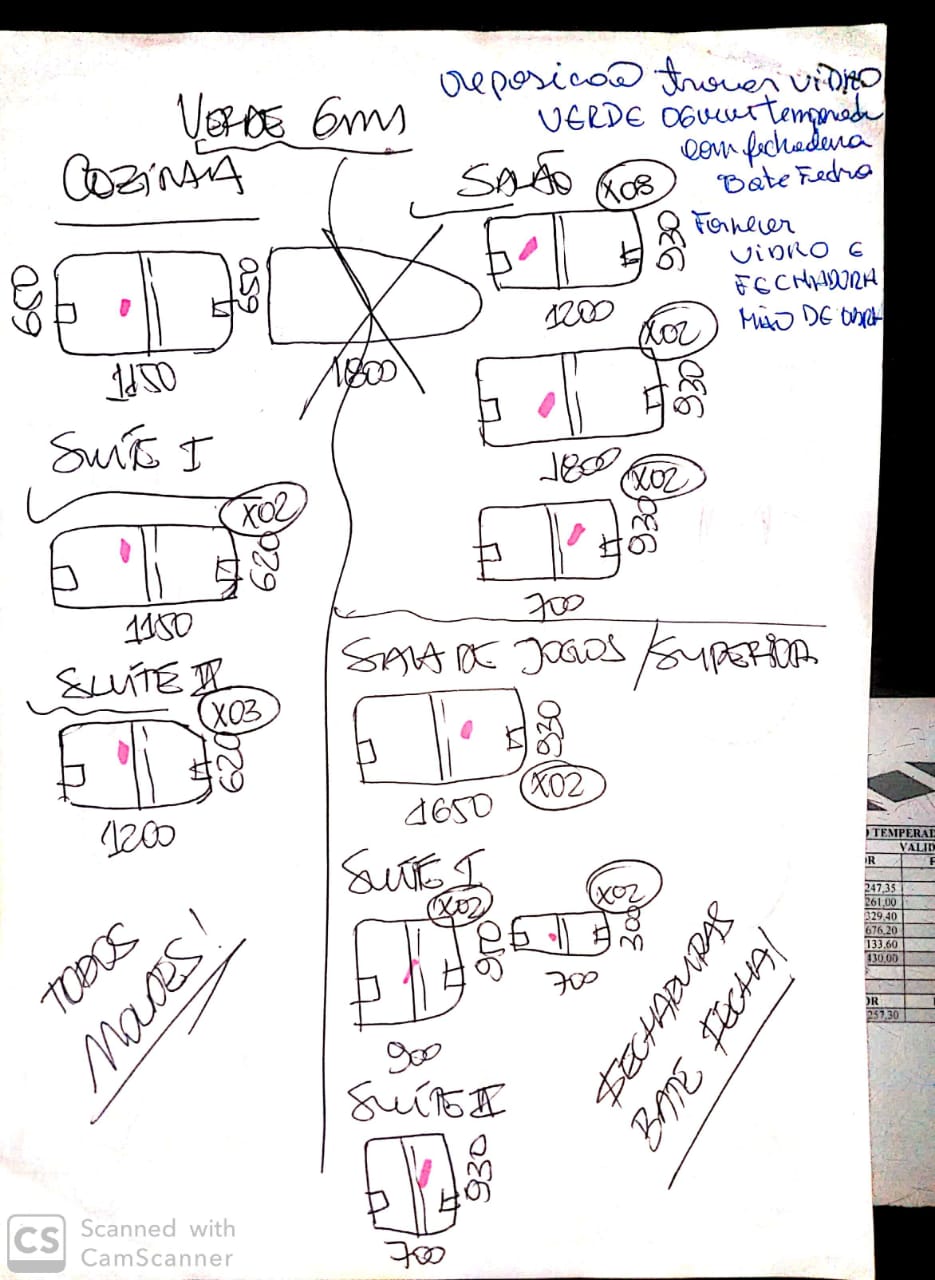 VERDE 6mm
reposicão trocar VIDRO
VERDE 06mm temperado
com fechadura
Bate Fecha
Fornecer
VIDRO E
FECHADURA
MÃO DE OBRA
COZINHA
650
1150
650
1800
SUÍTE I
X02
620
1150
SUÍTE II
X03
620
1200
TODOS
MOLDES!
SALÃO
X08
930
1200
X02
930
1800
X02
930
700
SALA DE JOGOS / SUPERIOR
930
X02
1650
SUÍTE I
X02
900
X02
300
700
SUÍTE II
930
700
FECHADURAS
BATE FECHA!
TEMPERAD
VALID
OR
247,35
261,00
329,40
676,20
133,60
430,00
OR
257,30
CS Scanned with
CamScanner